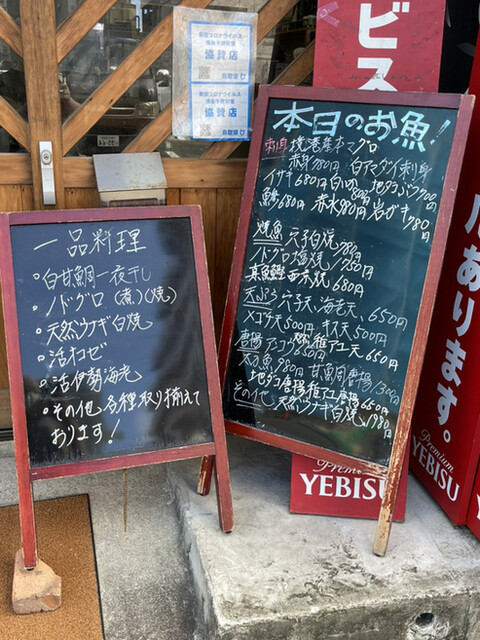 新型コロナウイルス
協賛店
鳥取県
新型コロナウイルス
協賛店
鳥取県
ビス
一品料理
・白甘鯛一夜干し
・ノドグロ(煮)(焼)
・天然ウナギ白焼
・活オコゼ
・活伊勢海老
・その他各種取り揃えて
おります!
本日のお魚!
刺身 境港産本マグロ
赤身780円 白アマダイ刺身
イサキ680円 白いか 地タコぶつ700
鯵680円 赤水980円 岩ガキ780円
焼魚 穴子白焼780円
ノドグロ塩焼1780円
真魚鰹西京焼680円
天ぷら 穴子天、海老天、650円
メゴチ天500円 キス天500円
唐揚 アコウ 天然稚アユ天660円
980円 甘鯛唐揚1300円
地ダコ唐揚 稚アユ唐揚650円
その他 天然ウナギ白焼1980円
YEBISU
あります。
Premium
YEBISU